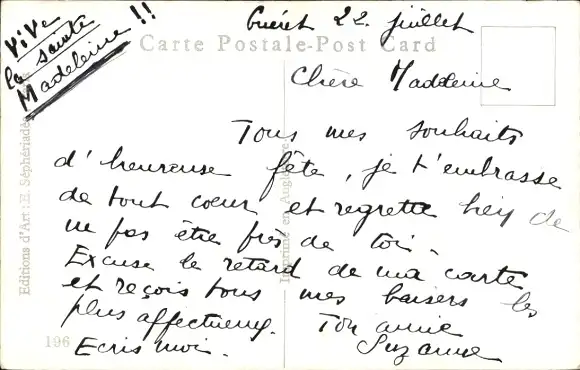 Vive
la sainte
Madeleine !!
Guéret 22 juillet
Carte Postale-Post Card
Chère Madeleine
Tous mes souhaits
d'heureuse fête, je t'embrasse
de tout coeur et regrette de
ne pas être près de toi.
Excuse le retard de ma carte
et reçois tous mes baisers les
plus affectueux. Ton amie
Ecris moi. Suzanne
196
Editions d'Art: E. Séphériadès
Imprimé en Angleterre